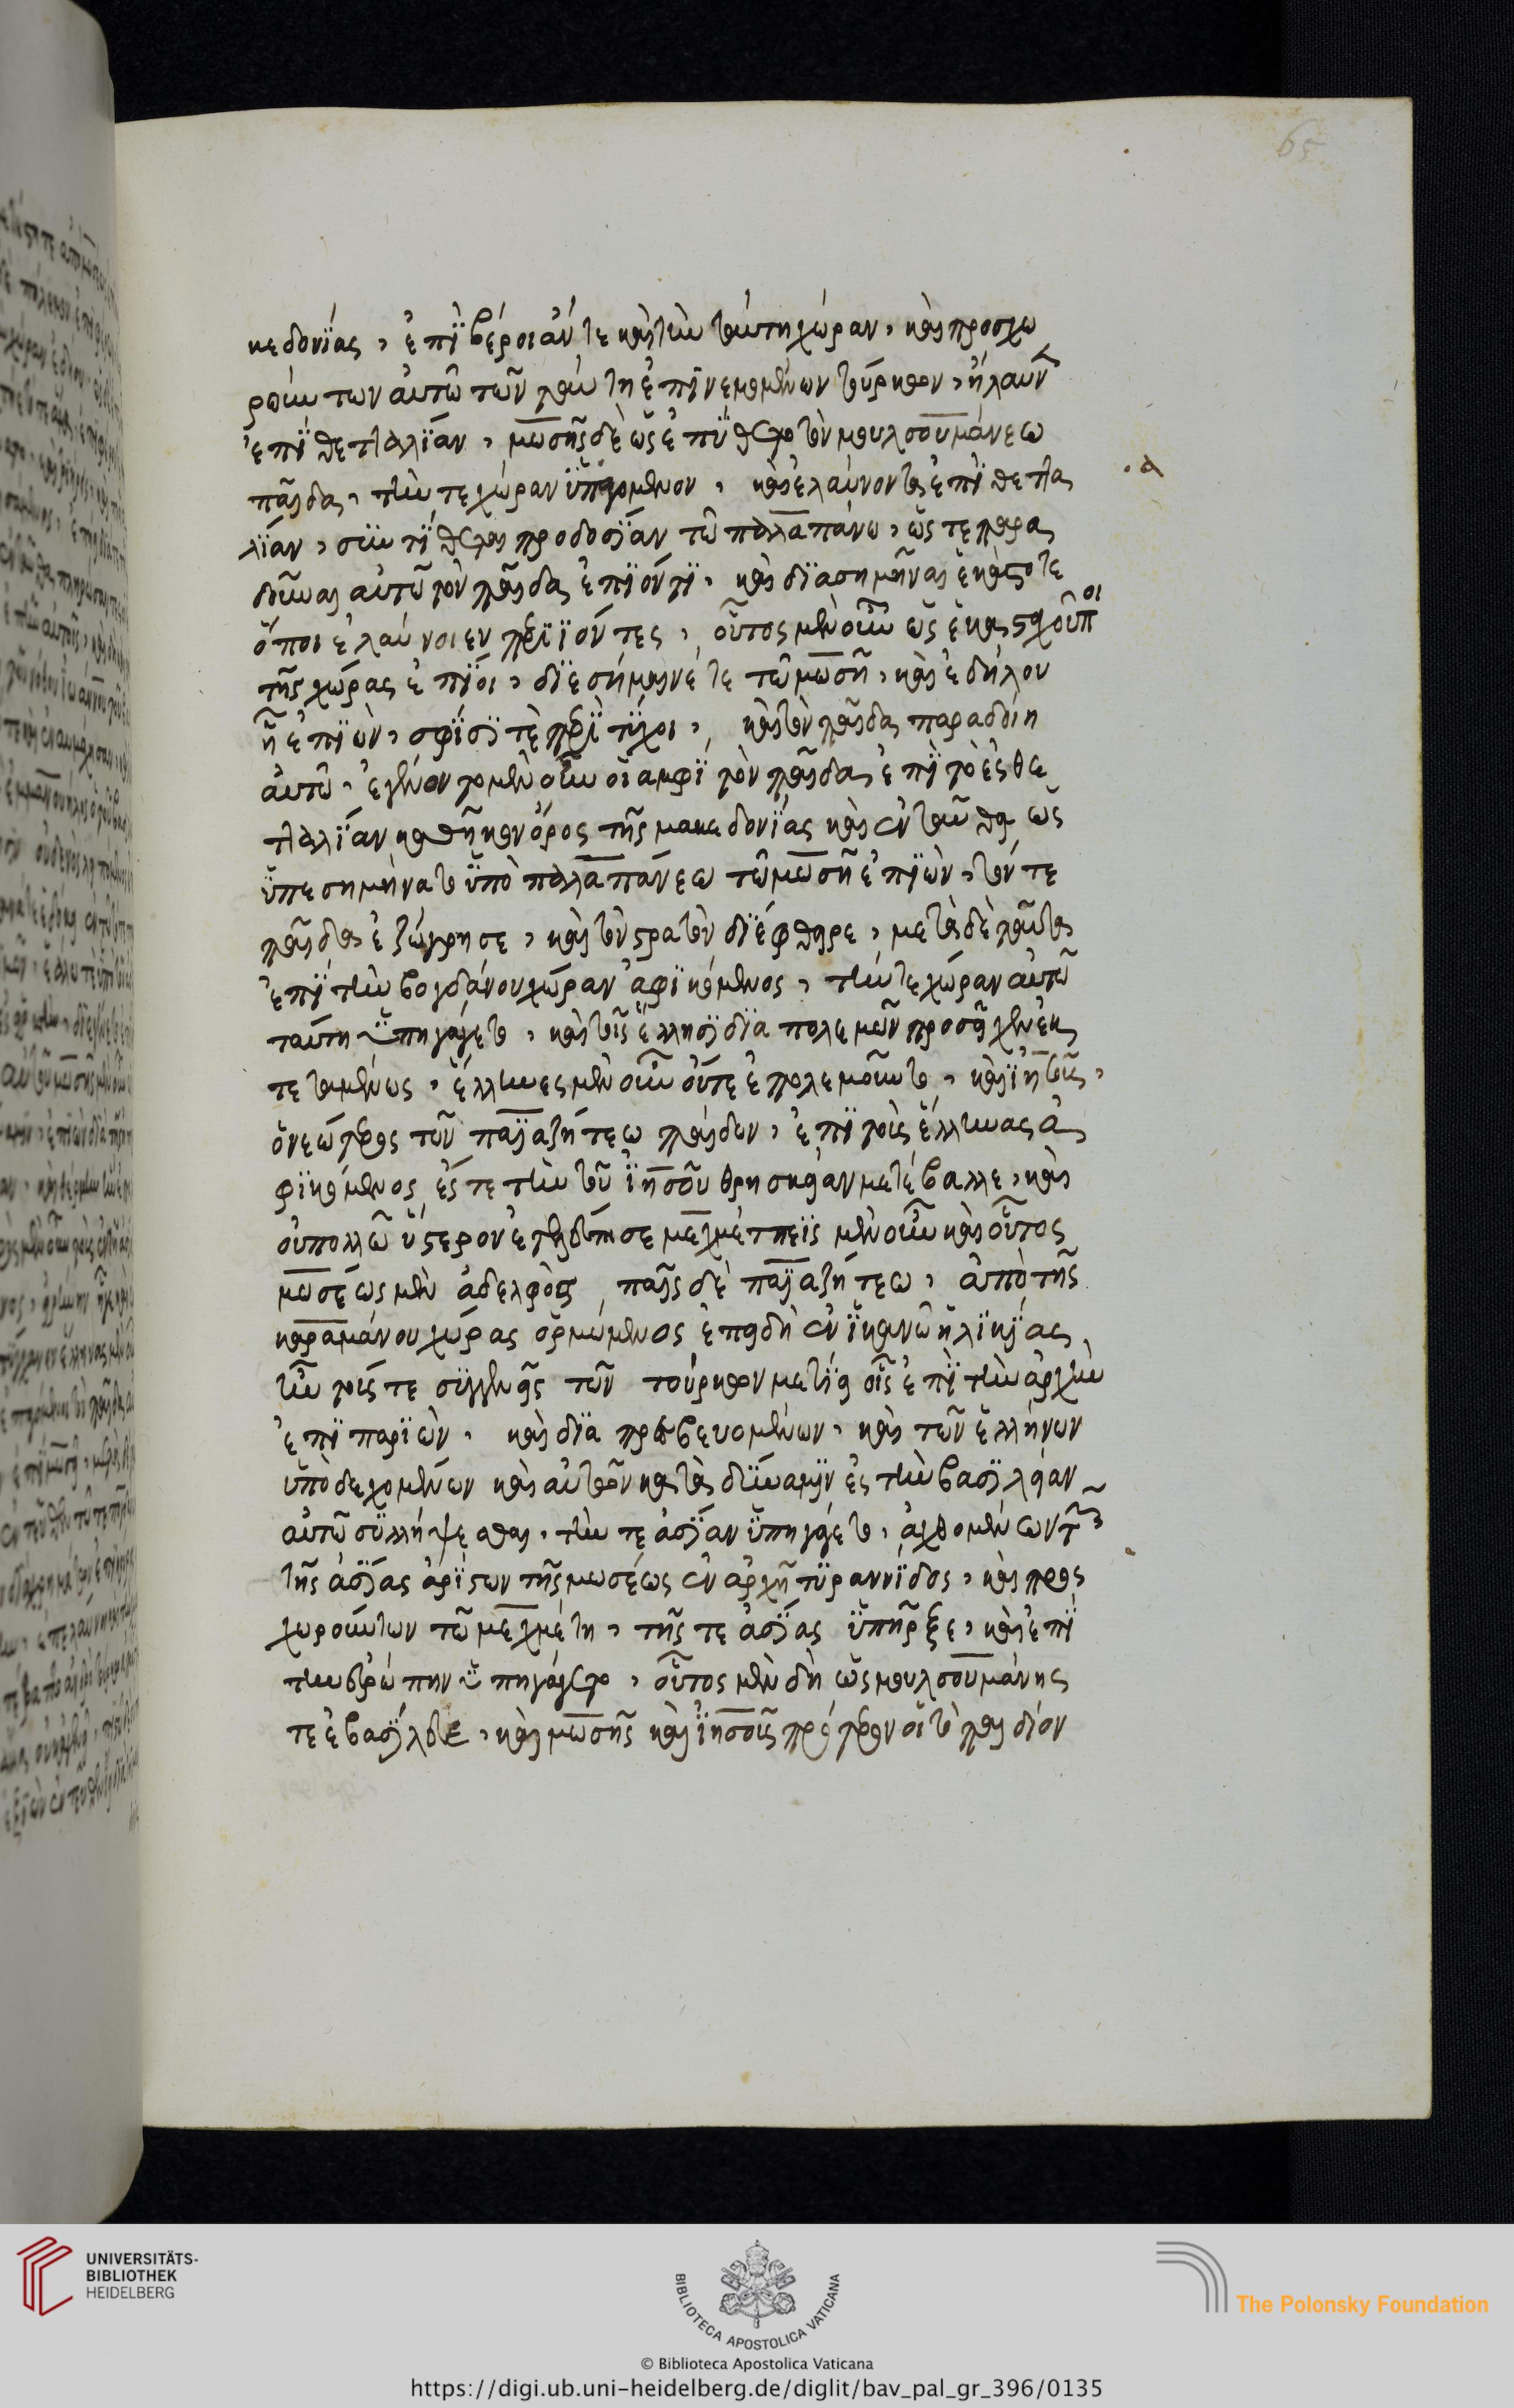 65
κεδονίας, ἐπὶ βέροιάν τε καὶ τὴν ταύτῃ χώραν, καὶ προσχω
ρούντων αὐτῶ τῶν ταύτῃ ἐπινεμομένων τούρκων, ἤλαυν
ἐπὶ θετταλίαν, μωσῆς δὲ ὡς ἐπύθετο τὸν μουλσουμάνεω
παῖδα, τήν τε χώραν ὑπαγόμενον, καὶ ἐλαύνοντα ἐπὶ θεττα
λίαν, συντίθεται προδοσίαν τῶ παλαπάνω, ὥστε παρα
δοῦναι αὐτῶ τὸν παῖδα ἐπιόντι, καὶ διασημῆναι ἑκάστοτε
ὅποι ἐλαύνοιεν περιιόντες, οὗτος μὲν οὖν ὡς ἑκασταχοῦ ποι
τῆς χώρας ἐπίοι, διεσήμαινέ τε τῶ μωσῆ, καὶ ἐδήλου
ἧ ἐπιὼν, σφίσι τε περιτύχοι, καὶ τὸν παῖδα παραδοίη
αὐτῶ, ἐγένοντο μὲν οὖν οἱ ἀμφὶ τὸν παῖδα ἐπὶ τὸ ἐς θε
τταλίαν καθῆκον ὄρος τῆς μακεδονίας καὶ ἐνταῦθα ὡς
ὑπεσημήνατο ὑπὸ παλαπάνεω τῶ μωσῆ ἐπιὼν, τόν τε
παῖδα ἐζώγρησε, καὶ τὸν στρατὸν διέφθειρε, μετὰ δὲ ταῦτα
ἐπὶ τὴν βογδάνου χώραν ἀφικόμενος, τήν τε χώραν αὐτῶ
ταύτῃ ὑπηγάγετο, καὶ τοῖς ἕλλησι διὰ πολέμων προσῆγεν ἐκ
τεταμένως, ἕλληνες μὲν οὖν οὔτε ἐπολεμοῦντο, καὶ ἰησοῦς,
ὁ νεώτερος τῶν παϊαζήτεω παίδων, ἐπὶ τοὺς ἕλληνας ἀ
φικόμενος ἔς τε τὴν τοῦ ἰησοῦ θρησκείαν μετέβαλλε, καὶ
οὐ πολλῶ ὕστερον ἐτελεύτησε μεχμέτης μὲν οὖν καὶ οὗτος
μωσέως μὲν ἀδελφὸς, παῖς δὲ παϊαζήτεω, ἀπὸ τῆς
καραμάνου χώρας ὁρμώμενος ἐπειδὴ ἐν ἱκανῶ ἡλικίας
ἦν τοῖς τε συγγενέσι τῶν τούρκων μετιὼν οἷς ἐπὶ τὴν ἀρχὴν
ἐπιπαριὼν, καὶ διαπρεσβευομένων, καὶ τῶν ἑλλήνων
ὑποδεχομένων καὶ αὐτῶν κατὰ δύναμιν ἐς τὴν βασιλείαν
αὐτῶ συλλήψεσθαι, τήν τε ἀσίαν ὑπηγάγετο, ἀχθομένων τῶν
τῆς ἀσίας ἀρίστων τῆς μωσέως ἐν ἀρχῆ τυραννίδος, καὶ προς
χωρούντων τῶ μεχμέτῃ, τῆς τε ἀσίας ὑπῆρξε, καὶ ἐπὶ
τὴν εὐρώπην ὑπηγάγετο, οὗτος μὲν δὴ ὡς μουλσουμάνης
τε ἐβασίλευε, καὶ μωσῆς καὶ ἰησοῦς πρότερον οἱ τὸ παιδίον
UNIVERSITÄTS-
BIBLIOTHEK
HEIDELBERG
BIBLIOTECA APOSTOLICA VATICANA
The Polonsky Foundation
© Biblioteca Apostolica Vaticana
https://digi.ub.uni-heidelberg.de/diglit/bav_pal_gr_396/0135